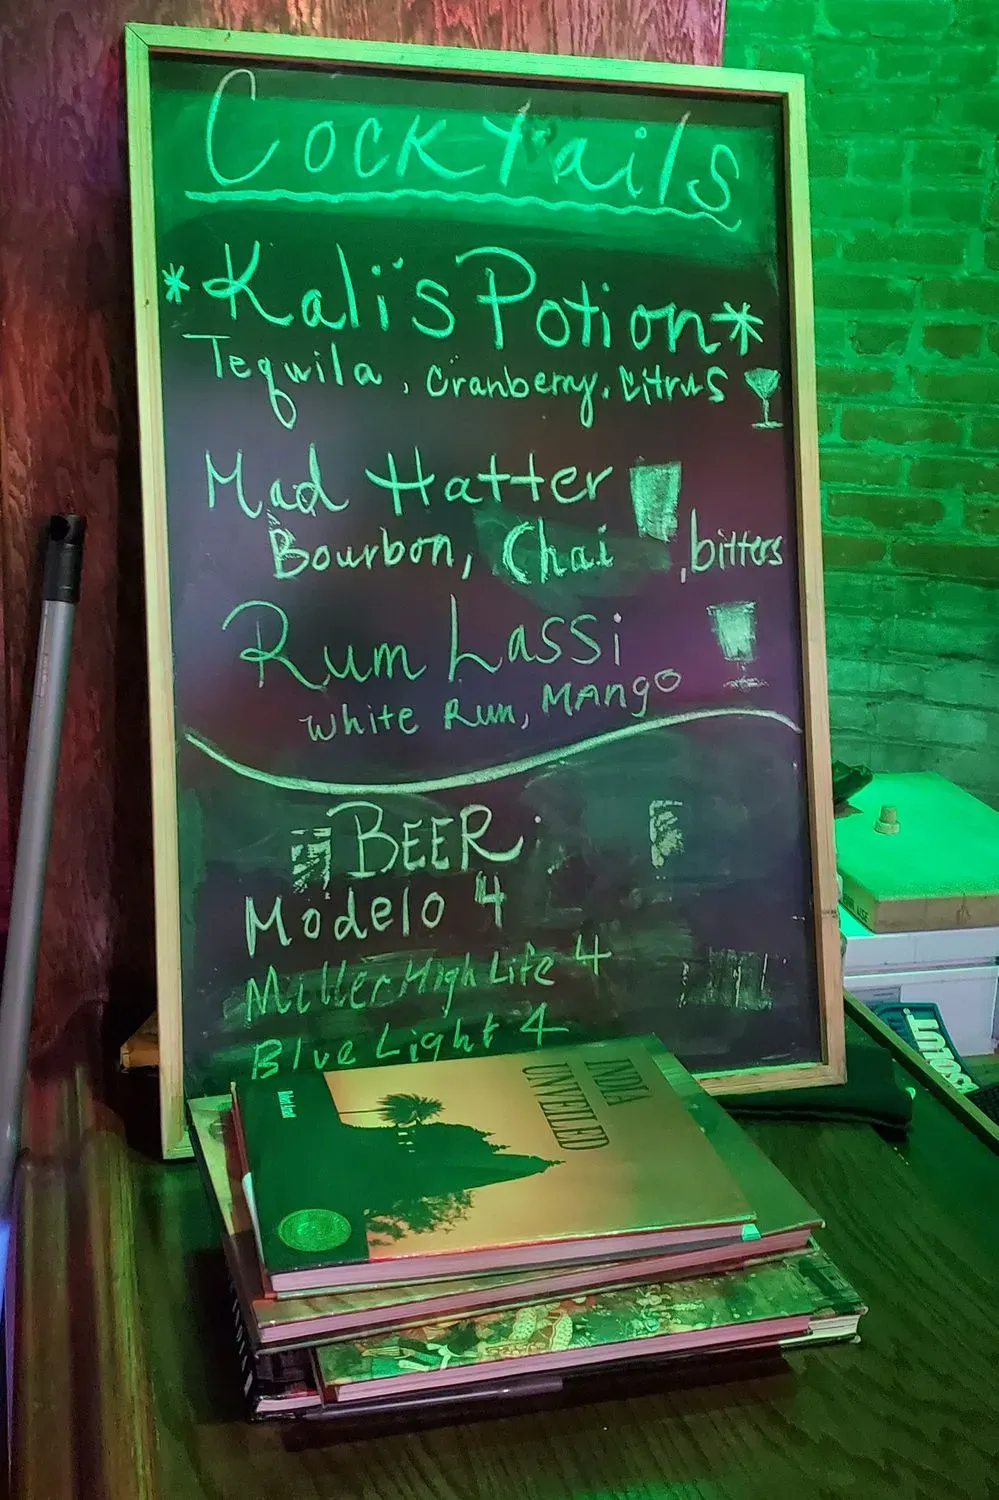 Cocktails
*Kali's Potion*
Tequila, Cranberry, Citrus
Mad Hatter
Bourbon, Chai , bitters
Rum Lassi
White Rum, MANgO
BEER
Modelo 4
Miller High Life 4
Blue Light 4
INDIA
UNVEILED